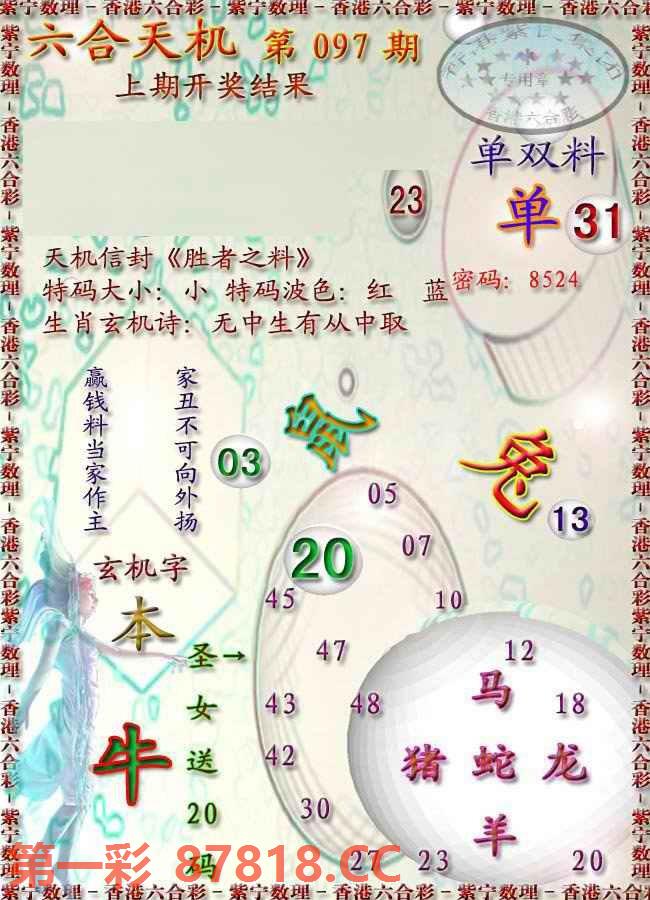 紫宁数理－香港六合彩－紫宁数理－香港六合彩－紫宁数理－香港六合彩
六合天机 第 097 期
上期开奖结果
专用章
香港六合彩
单双料
单 31
23
天机信封《胜者之料》
特码大小：小 特码波色：红 蓝
密码：8524
生肖玄机诗：无中生有从中取
赢钱料当家作主
家丑不可向外扬
03
鼠
兔
13
05
07
20
45
10
玄机字
本
圣女送20码
→
47
12
马
43
48
18
牛
42
猪 蛇 龙
30
羊
27
23
20
第一彩 87818.CC
紫宁数理－香港六合彩－紫宁数理－香港六合彩－紫宁数理－香港六合彩